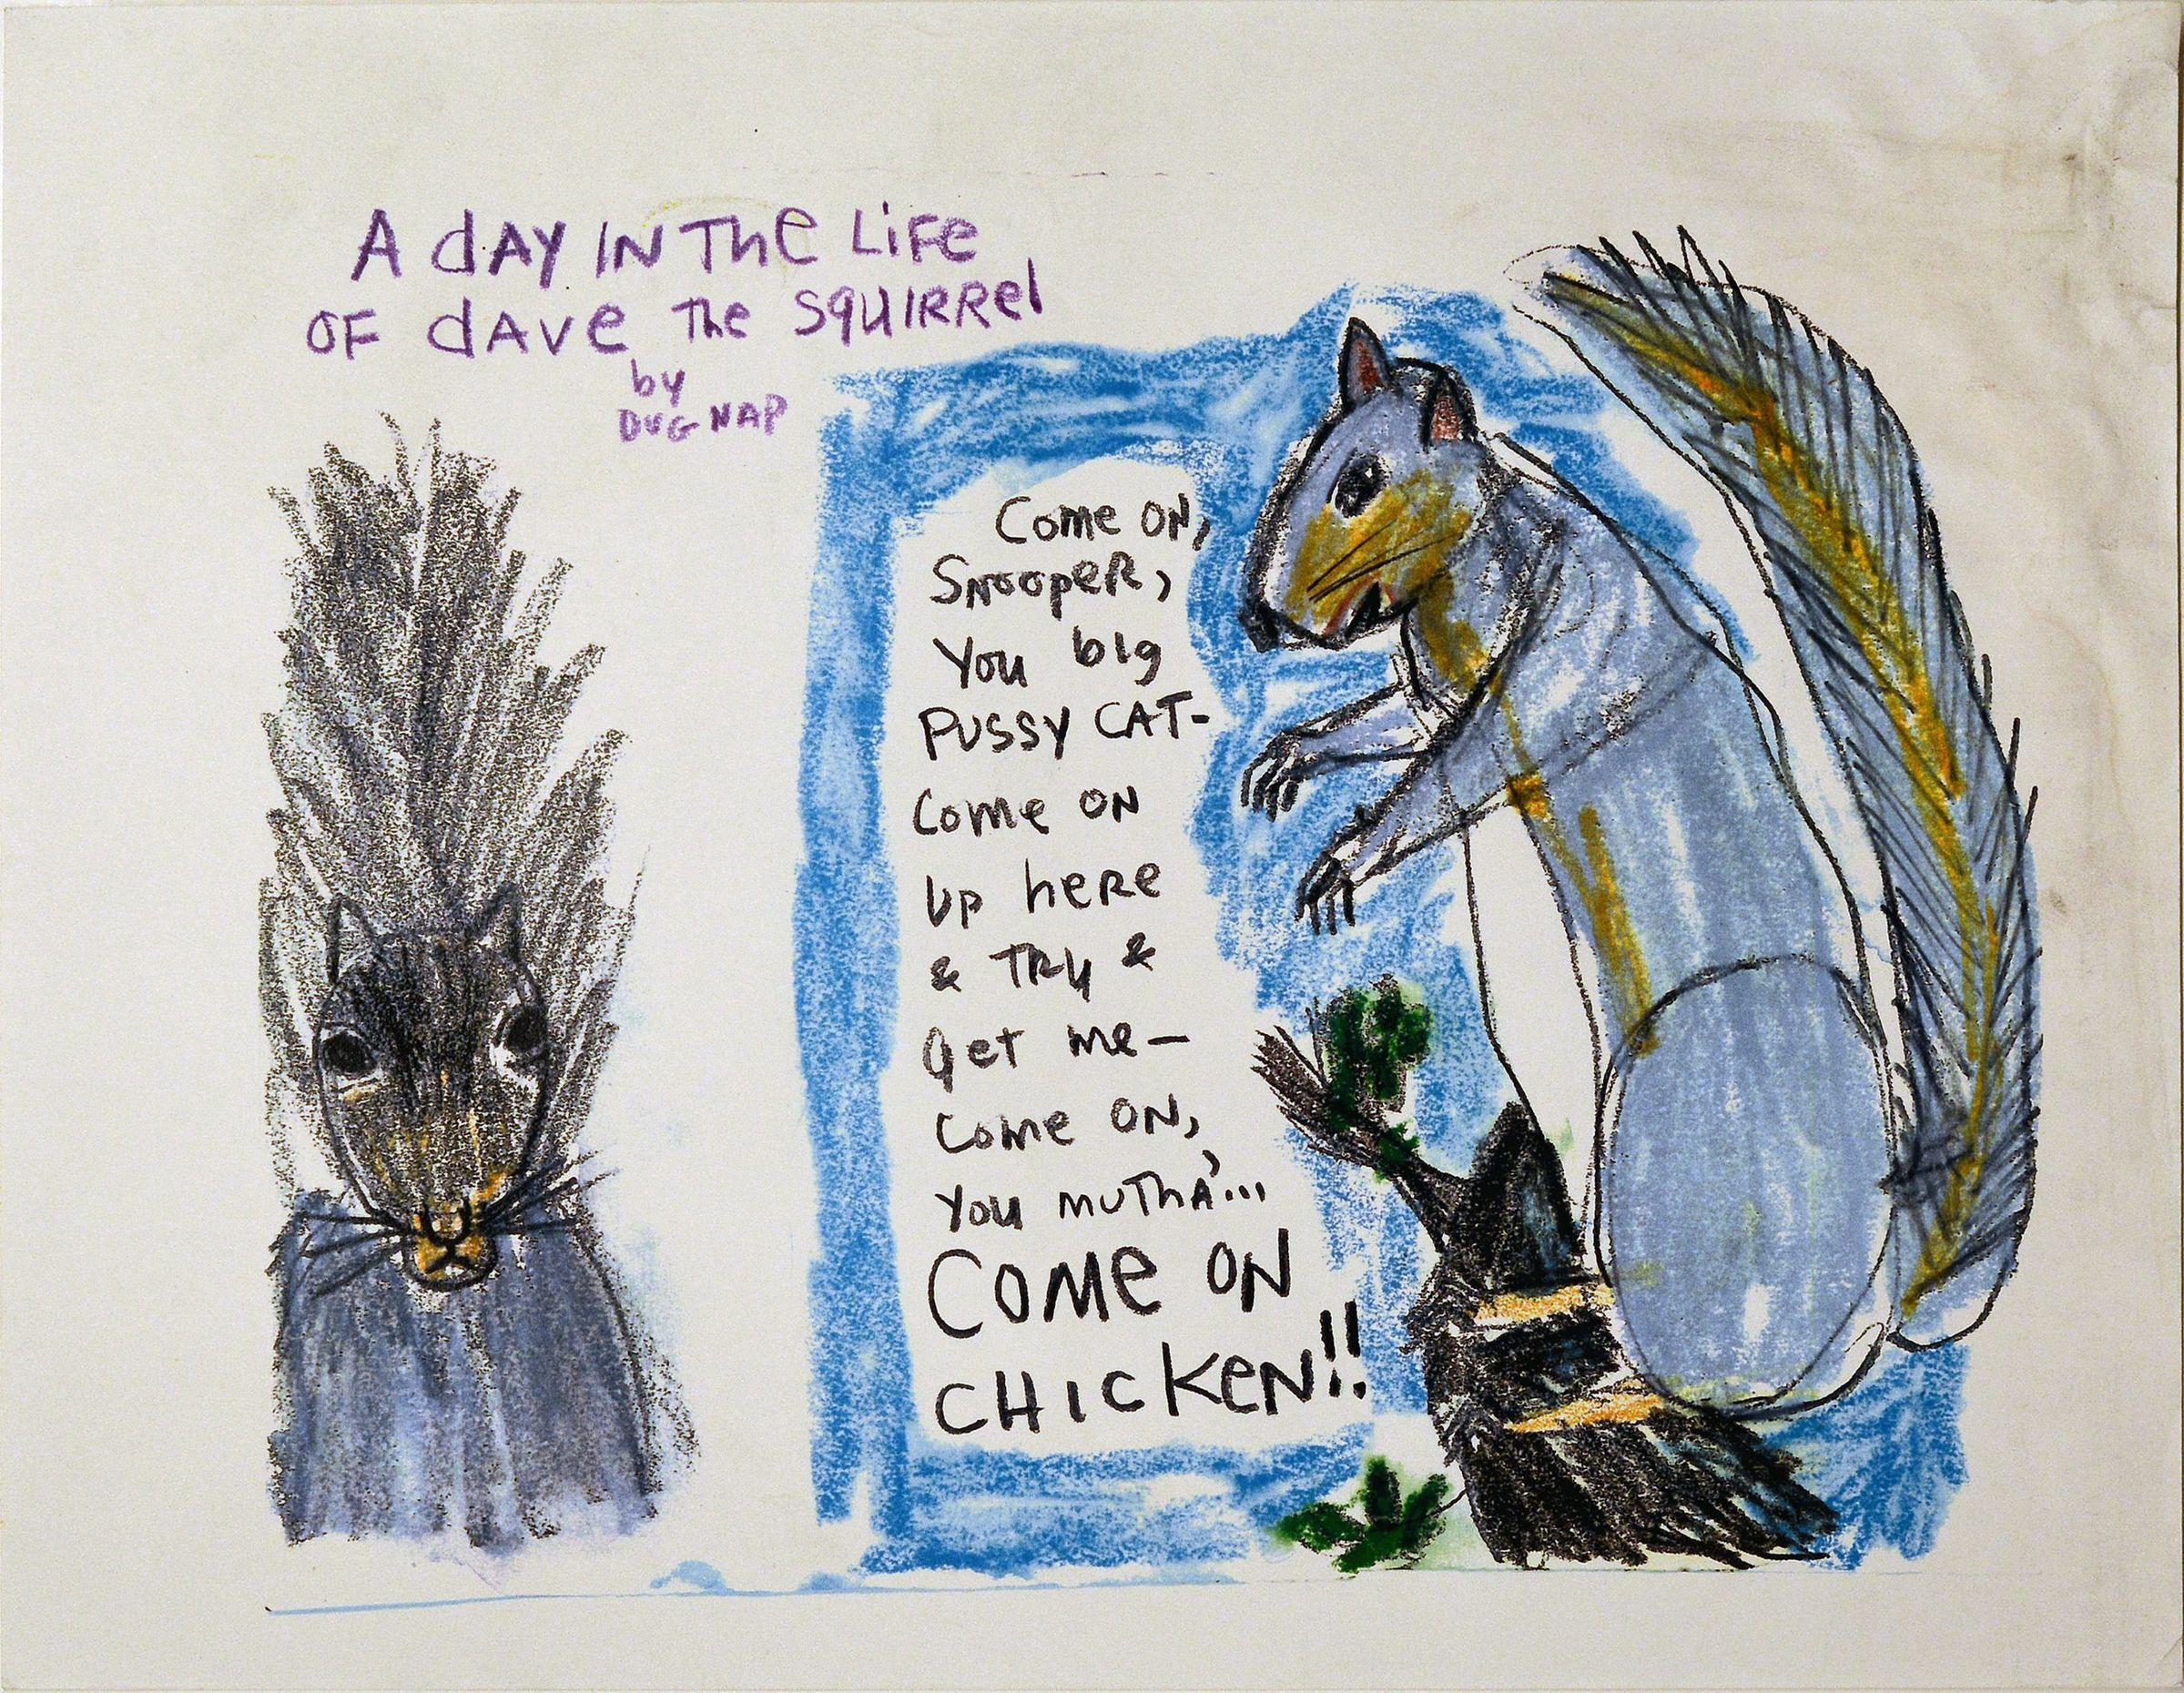 A dAY IN The LiFe
OF dAve The SquIRRel
by
DUG NAP
Come ON,
Snooper,
You big
PUSSY CAT-
Come ON
UP heRe
& TRy &
get me—
Come ON,
You muThA'...
COMe ON
CHIcKeN!!